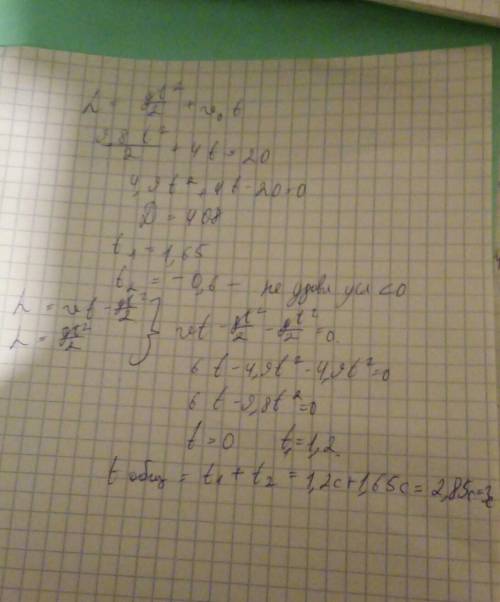 L = gt²/2 + v₀t
9,8t²/2 + 4t = 20
4,9t² + 4t - 20 = 0
D = 408
t₁ = 1,65
t₂ = -0,6 - не удовл усл < 0
L = vt - gt²/2
L = gt²/2 } vt - gt²/2 - gt²/2 = 0
6t - 4,9t² - 4,9t² = 0
6t - 9,8t² = 0
t = 0 t₁ = 1,2
t общ = t₁ + t₂ = 1,2с + 1,65с = 2,85с = 3с